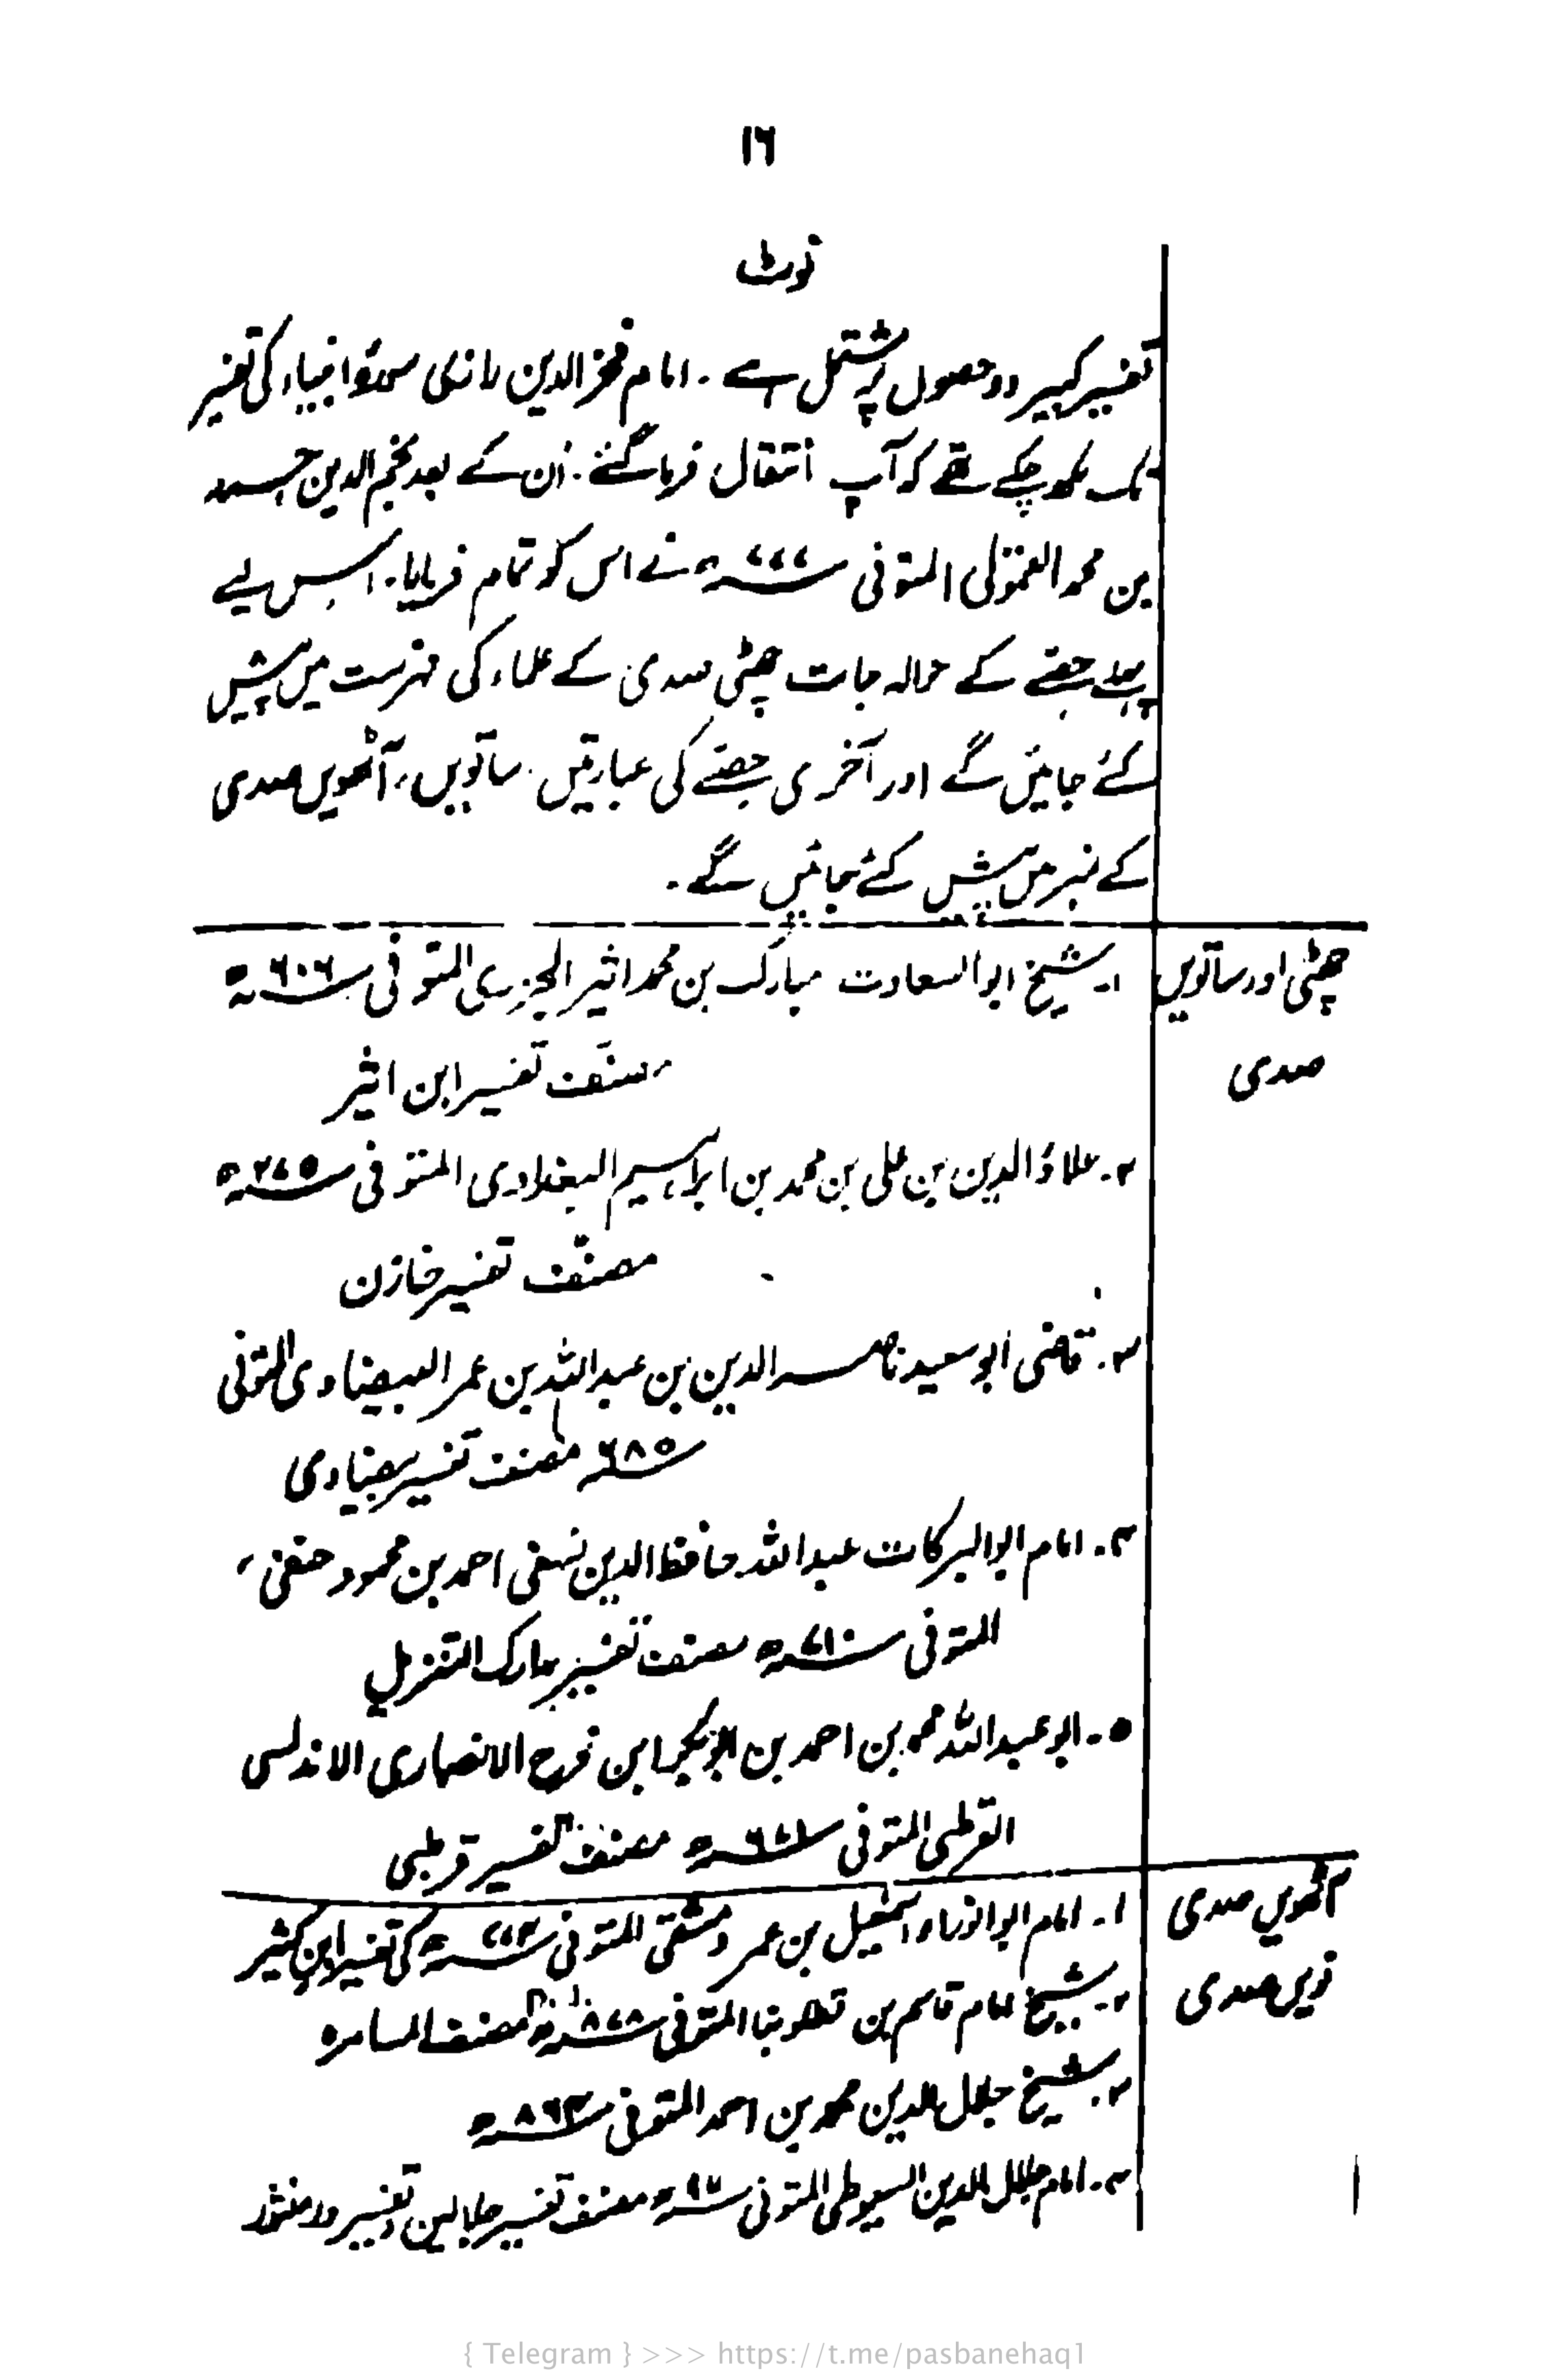 ۱۶
نوٹ
تفسیر کبیر دو حصول پر مشتمل ہے۔ امام فخر الدین رازی سورۃ انبیاء کی تفسیر
تک لکھ چکے تھے کہ آپ انتقال فرما گئے۔ ان کے بعد نجم الدین احمد
بن محمد القمولی المتوفی ۷۷۷ھ نے اس کو تمام فرمایا۔ اس لیے
پہلے حصّے کے حوالہ جات چھٹی صدی کے علماء کی فہرست میں پیش
کئے جائیں گے اور آخری حصّے کی عبارتیں ساتویں، آٹھویں صدی
کے نمبر میں پیش کئے جائیں گے۔
چھٹی اور ساتویں
صدی
۱۔ شیخ ابو السعادت مبارک بن محمد اثیر الجزری المتوفی ۶۰۶ھ
مصنّف تفسیر ابن اثیر
۲۔ علاؤ الدین بن علی بن محمد بن ابراہیم البغدادی المتوفی ۷۲۵ھ
مصنّف تفسیر خازن
۳۔ قاضی ابو سعید ناصر الدین بن عبد اللہ بن عمر البیضاوی المتوفی
۶۸۵ھ مصنف تفسیر بیضاوی
۴۔ امام ابو البرکات عبد اللہ حافظ الدین نسفی احمد بن محمود حنفی،
المتوفی ۷۱۰ھ مصنف تفسیر مدارک التنزیل
۵۔ ابو عبد اللہ محمد بن احمد بن ابو بکر ابن فرح الانصاری الاندلسی
القرطبی المتوفی ۶۷۱ھ مصنف تفسیر قرطبی
آٹھویں صدی
نویں صدی
۱۔ امام ابو الفداء اسمٰعیل بن عمر دمشقی المتوفی ۷۷۴ھ کی تفسیر ابن کثیر
۲۔ شیخ امام قاسم بن قطلوبغا المتوفی ۸۷۸ھ مصنف المسامرہ
۳۔ شیخ جلال الدین محمد بن احمد المتوفی ۸۶۴ھ
۴۔ امام جلال الدین السیوطی المتوفی ۹۱۱ھ مصنف تفسیر جلالین و تفسیر در منثور
{ Telegram } >>> https://t.me/pasbanehaq1